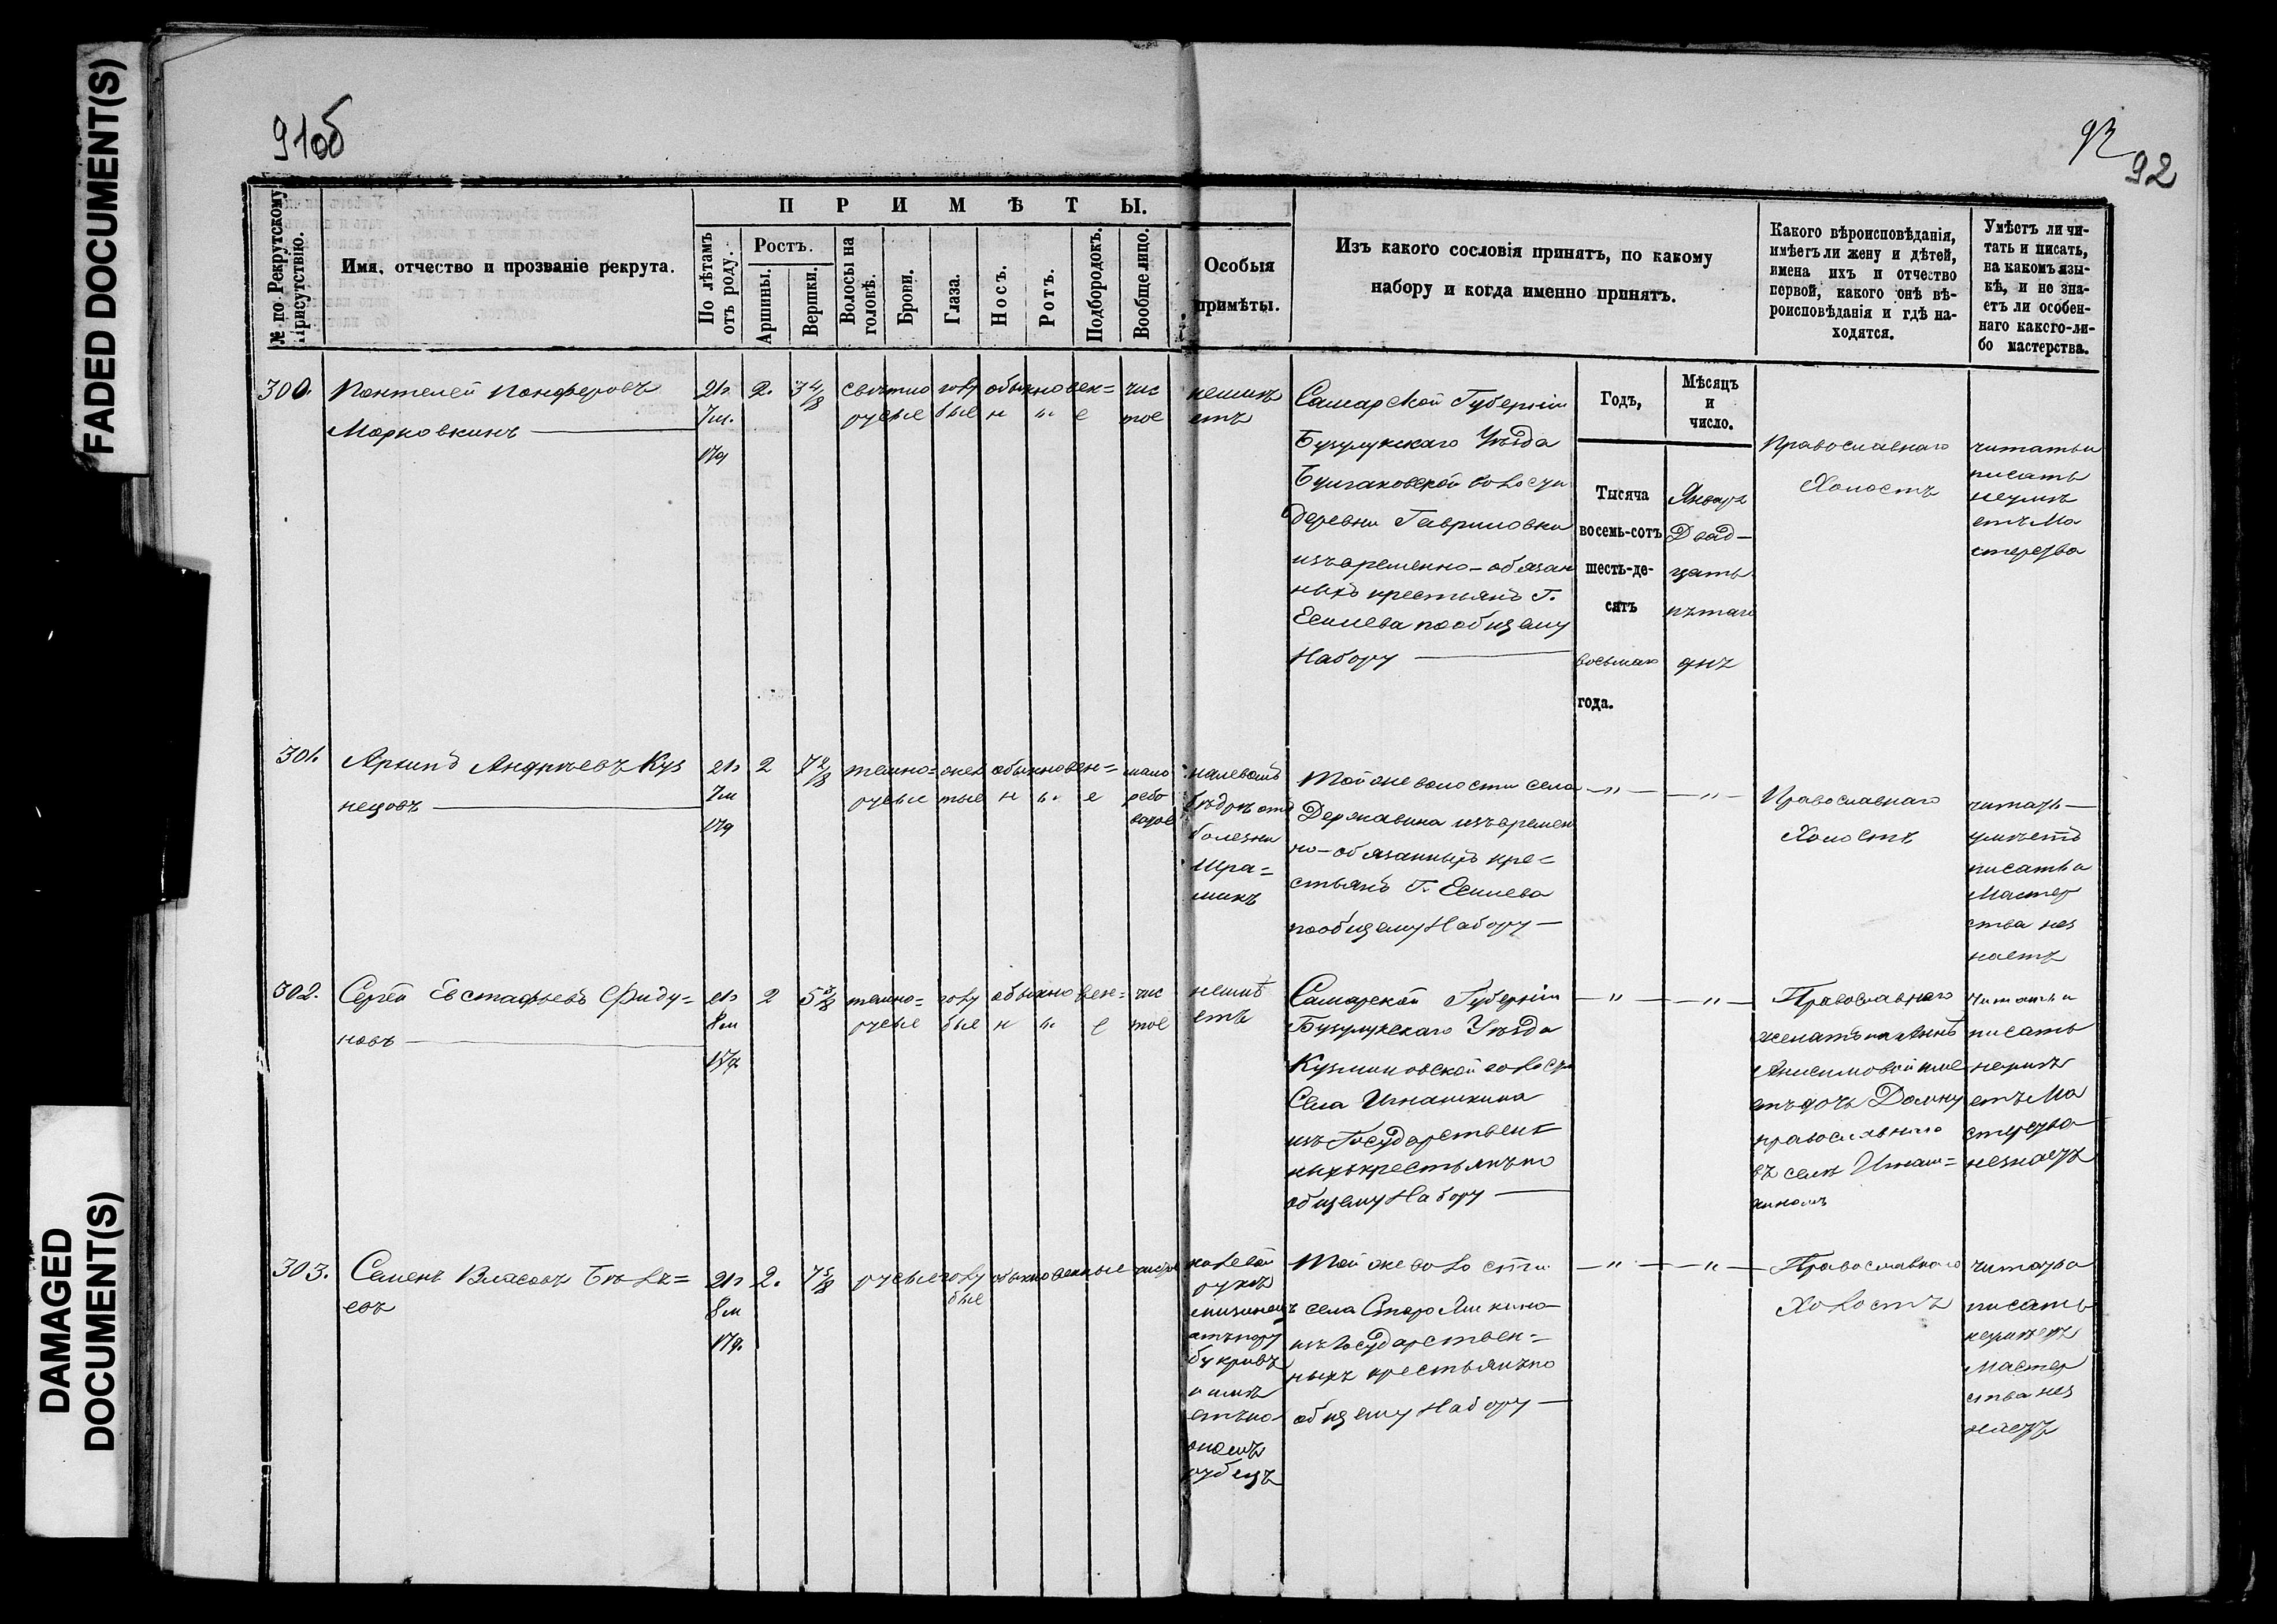 FADED DOCUMENT(S)
DAMAGED
DOCUMENT(S)
91об
92
№ по Рекрутскому
Присутствію.
Имя, отчество и прозваніе рекрута.
ПРИМѢТЫ.
По лѣтамъ
отъ роду.
Ростъ.
Аршины.
Вершки.
Волосы на
головѣ.
Брови.
Глаза.
Носъ.
Ротъ.
Подбородокъ.
Вообще лицо.
Особыя
примѣты.
Изъ какого сословія принятъ, по какому
набору и когда именно принятъ.
Какого вѣроисповѣданія,
имѣетъ ли жену и дѣтей,
имена ихъ и отчество
первой, какого онѣ вѣ-
роисповѣданія и гдѣ на-
ходятся.
Умѣетъ ли чи-
тать и писать,
на какомъ язы-
кѣ, и не зна-
етъ ли особен-
наго какого-ли-
бо мастерства.
300.
Пантелей Панферовъ
Морковкинъ
21г
7м.
17д
2.
3 4/8
свѣтло
русые
голу
бые
обыкновен=
н ы е
чис
тое
неимѣ
етъ
Самарской Губерніи
Бузулукскаго Уѣзда
волости
деревни Гавриловки
изъ временно-обязан
ныхъ крестьянъ Г.
пообщему
Набору
Годъ,
Мѣсяцъ
и
число.
Тысяча
восемь-сотъ
шесть-де-
сятъ
восьмаго
года.
Января
Двад-
цать
пятаго
дня
Православнаго
Холостъ
читать и
писать
неумѣ
етъ Ма
стерства
301.
Архипъ Андреевъ Куз
нецовъ
21г
7м
17д
2
7 2/8
темно=
русые
жел
тые
обыкновен=
н ы е
мало
рябо
ватое
налевомъ
бѣдрѣ отъ
болезни
шра=
микъ
Тойже волости села
Державина изъ времен
но-обязанныхъ кре=
стьянъ Г.
пообщему Набору
— „ —
— „ —
Православнаго
Холостъ
читать
умѣетъ
писать и
Мастер
ства нез
наетъ
302.
Сергѣй Евстафьевъ Фиду=
новъ
21г
8м
17д.
2
5 3/8
темно=
русые
голу
бые
обыкновен=
н ы е
чис
тое
неимѣ
етъ
Самарской Губерніи
Бузулукскаго Уѣзда
Кузминовской волости
Села Игнашкина
изъ Государствен
ныхъ крестьянъ по
общему Набору
— „ —
— „ —
Православнаго
женатъ на Аннѣ
Анисимовой име
етъ дочь Домну
православнаго
въ селѣ Игнаш=
кином
Читать и
писать
неумѣ
етъ Ма
стерства
незнаетъ
303.
Семенъ Власовъ Бѣля=
евъ
21г
8м
17д.
2.
7 5/8
русые
голу
бые
обыкновенные
чистое
на левой
рукѣ
мизинец
кривъ
и имѣ
етъ на
ономъ
рубецъ
Тойже волости
села Старо Яшкина
изъ Государствен=
ныхъ крестьянъ по
общему Набору
— „ —
— „ —
Православнаго
Холостъ
читать и
писать
неумѣетъ
Мастер
ства нез
наетъ